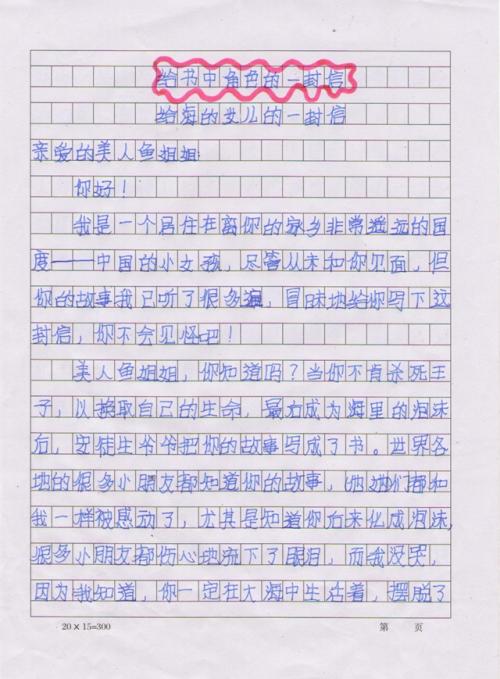 给书中角色的一封信
给海的女儿的一封信
亲爱的美人鱼姐姐:
你好!
我是一个居住在离你的家乡非常遥远的国
度——中国的小女孩，尽管从未和你见面，但
你的故事我已听了很多遍，冒昧地给你写下这
封信，你不会见怪吧!
美人鱼姐姐，你知道吗?当你不肯杀死王
子，以换取自己的生命，最后成为海里的泡沫
后，安徒生爷爷把你的故事写成了书。世界各
地的很多小朋友都知道你的故事，她她们都和
我一样被感动了，尤其是知道你后来化成泡沫，
很多小朋友都伤心地流下了眼泪，而我没哭，
因为我知道，你一定在大海中生活着，摆脱了
20×15=300 第 页